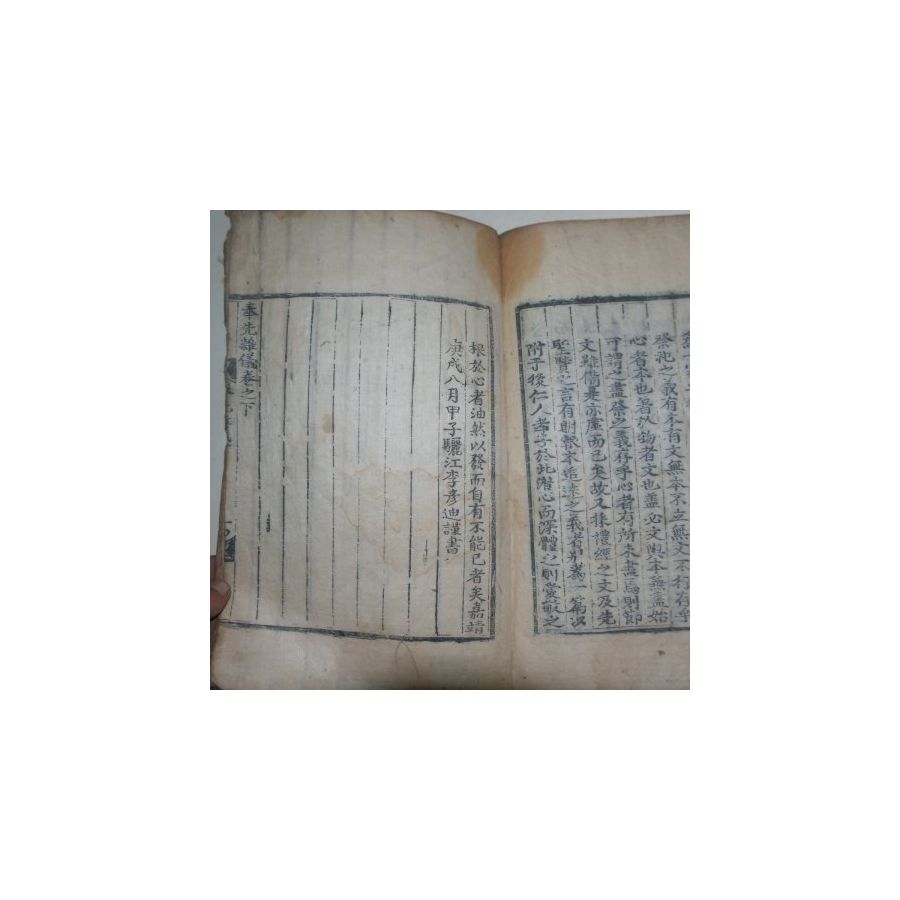 祭祀之義有本有文無本不立無文不行存乎
心者本也著於物者文也盖必文與本無盡始
可謂之盡祭之義存乎心者有所未盡焉則節
文雖備是亦虛而已矣故又採禮經之文及先
聖賢之言有明報本追遠之義者別爲一篇以
附于後仁人孝子於此潛心而深體之則愛敬之
根於心者油然以發而自有不能已者矣嘉靖
庚戌八月甲子驪江李彦迪謹書
奉先雜儀卷之下